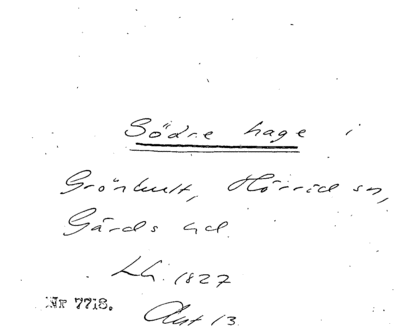 Södre hage i
Grönhult, Hörröd sn,
Gärds hd.
Lh. 1827
Nr 7718.
Akt 13